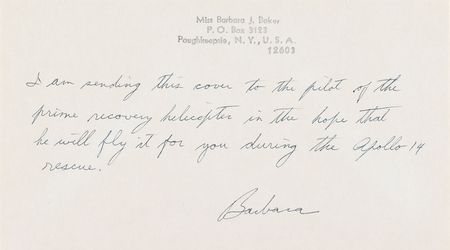 Miss Barbara J. Baker
P. O. Box 3123
Poughkeepsie, N. Y., U. S. A.
12603
I am sending this cover to the pilot of the
prime recovery helicopter in the hope that
he will fly it for you during the Apollo 14
rescue.
Barbara